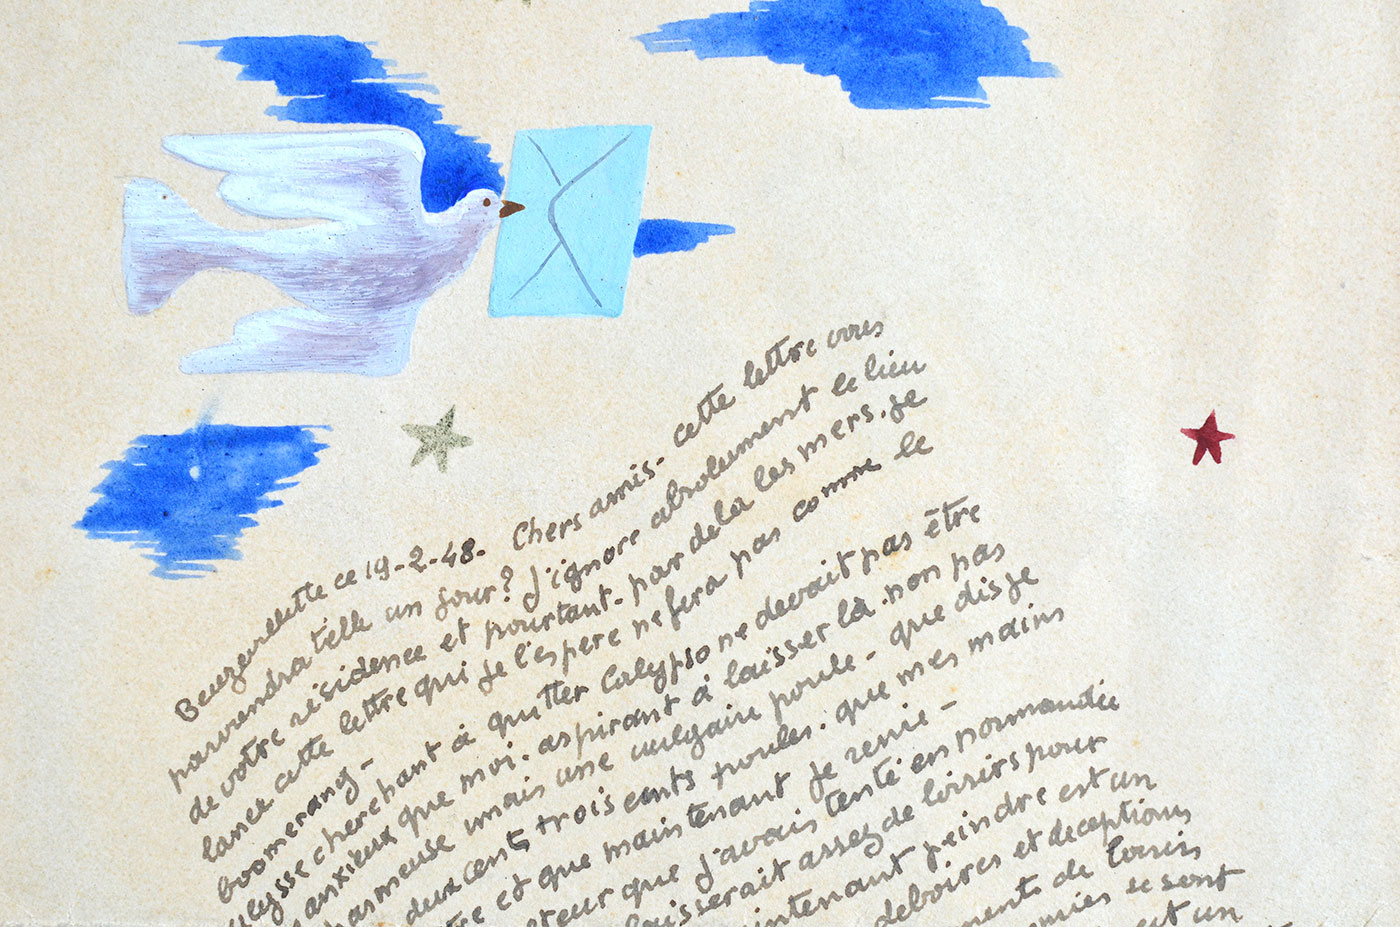 Beuzevillette ce 19-2-48- Chers amis- cette lettre vous
parviendra telle un jour? J'ignore absolument le lieu
de votre résidence et pourtant- par delà les mers. Je
lance cette lettre qui je l'espere ne fera pas comme le
boomerang-
Ulysse cherchant à quitter Calypso ne devait pas être
anxieux que moi. aspirant à laisser là. non pas
charmeuse mais une vulgaire poule- que dis je
deux cents trois cents poules. que mes mains
et que maintenant je renie-
que j'avais tenté en normandie
laisserait assez de loisirs pour
maintenant peindre est un
deboires et deceptions
moments de loisir
se sont
est un